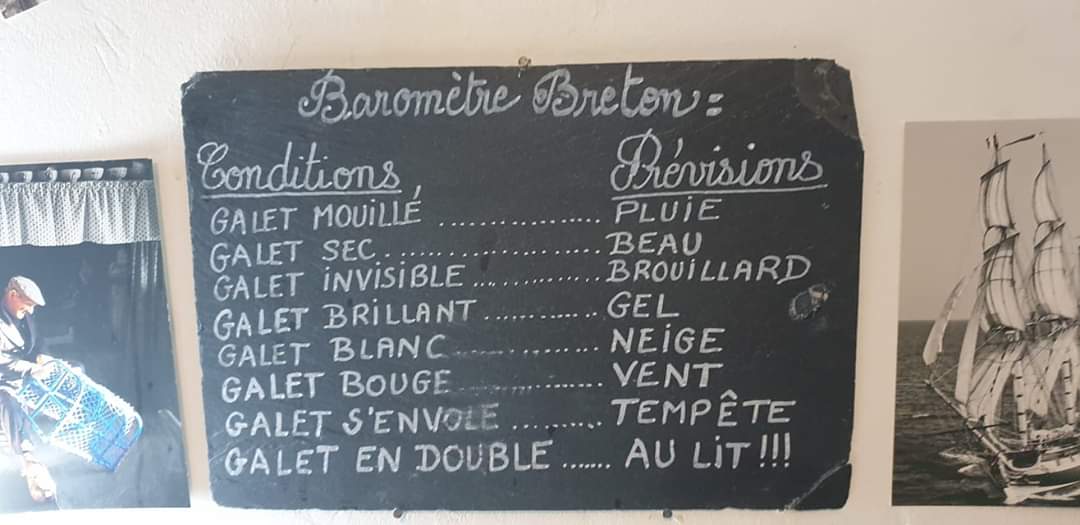 Baromètre Breton :
Conditions Prévisions
GALET MOUILLÉ ................ PLUIE
GALET SEC....................... BEAU
GALET INVISIBLE ............. BROUILLARD
GALET BRILLANT ............ GEL
GALET BLANC ............... NEIGE
GALET BOUGE ............... VENT
GALET S'ENVOLE .......... TEMPÊTE
GALET EN DOUBLE ...... AU LIT !!!